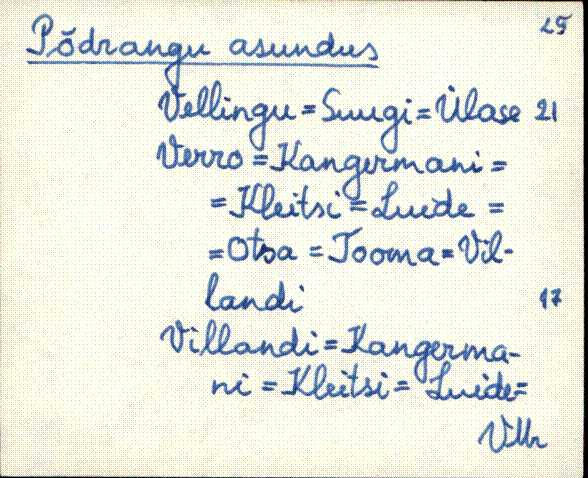 25
Põdrangu asundus
Vellingu = Suugi = Ülase 21
Verro = Kangermani =
= Kleitsi = Luide =
= Otsa = Tooma = Vil-
landi 17
Villandi = Kangerma-
ni = Kleitsi = Luide =